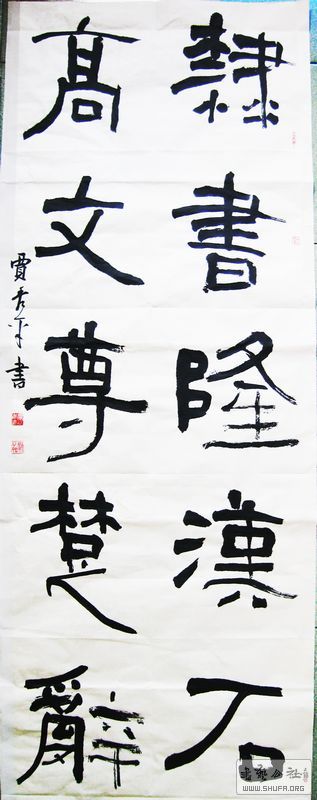 隸書隆漢石
高文尊楚辭
賈秀平書
WWW.SHUFA.ORG